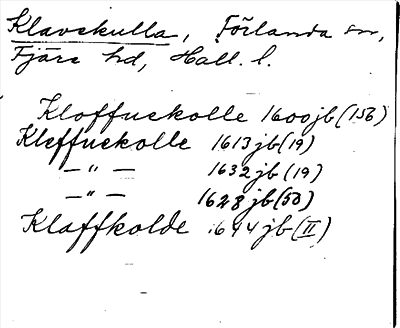 Klavskulla, Förlanda sn,
Fjäre hd, Hall. l.
Kloffuekolle 1600 jb (156)
Kleffuekolle 1613 jb (19)
— " — 1632 jb (19)
— " — 1628 jb (50)
Klaffkolde 1644 jb (II)